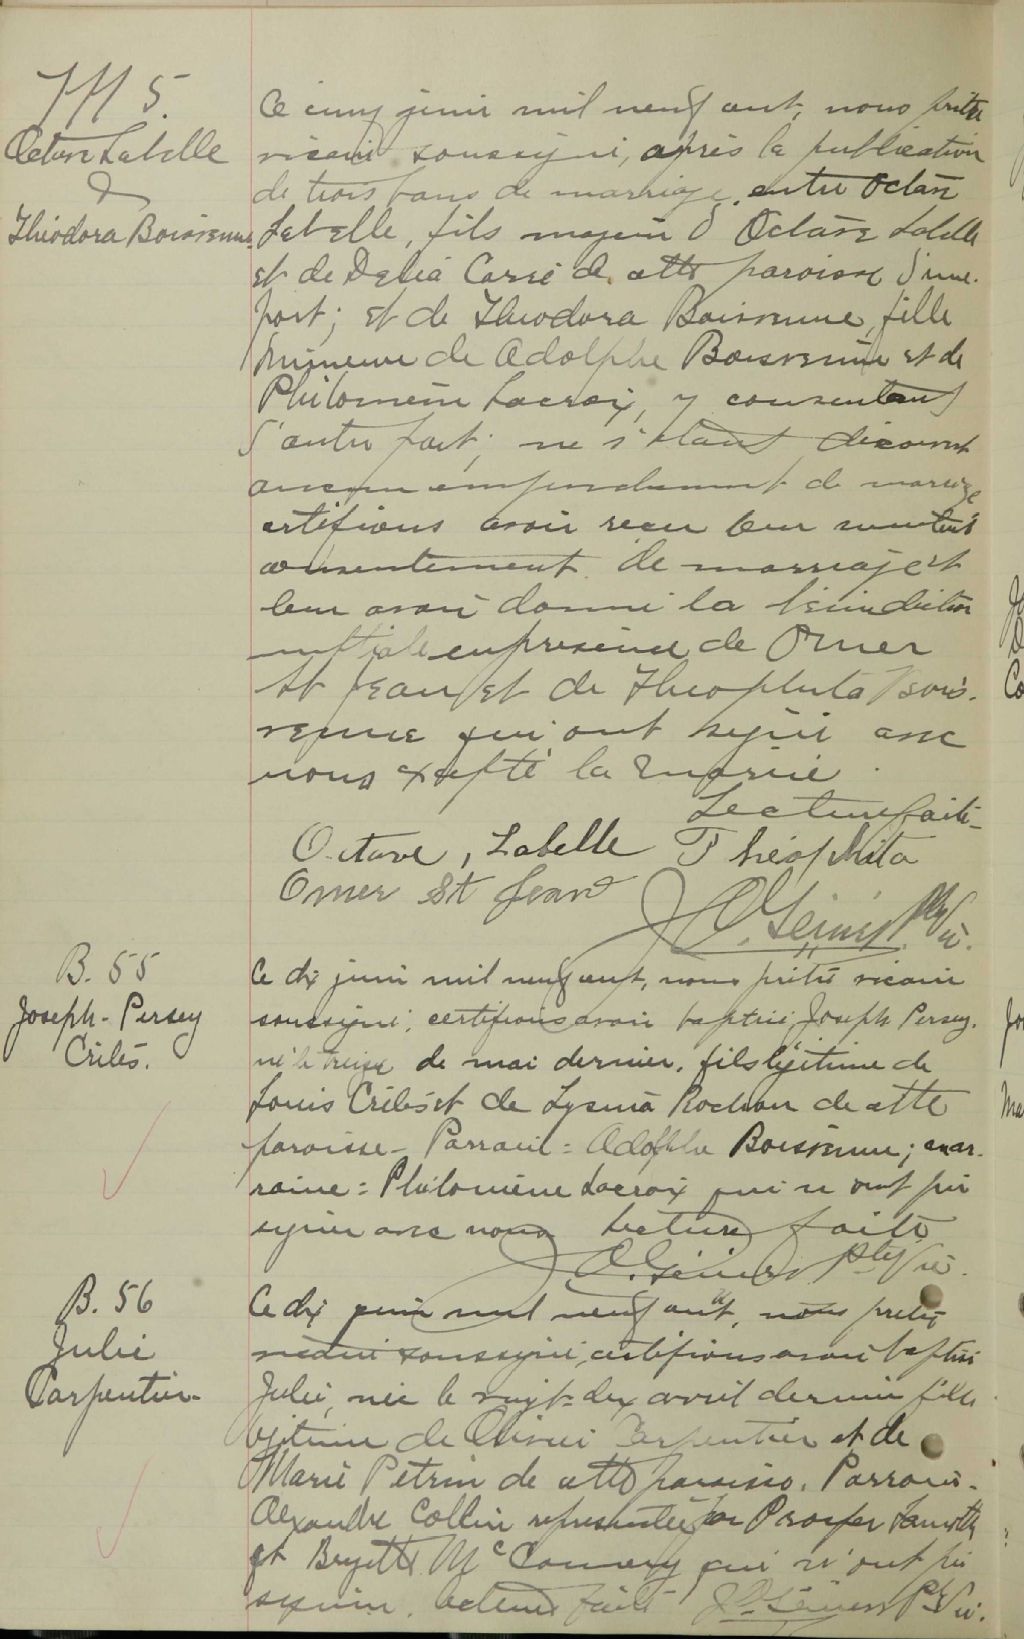 M 5.
Octave Labelle
&
Théodora Boisvenue
Ce cinq juin mil neuf cent, nous prêtre
vicaire soussigné, après la publication
de trois bans de marriage, entre Octave
Labelle, fils majeur d'Octave Labelle
et de Delia Carré de cette paroisse d'une
part; et de Théodora Boisvenue, fille
mineure de Adolphe Boisvenue et de
Philomène Lacroix, y consentant
d'autre part; ne s'étant découvert
aucun empêchement de mariage
certifions avoir reçu leur mutuel
consentement de marriage et
leur avoir donné la bénédiction
nuptiale en présence de Omer
St Jean et de Théophita Bois-
venue qui ont signé avec
nous excepté la mariée.
Lecture faite-
Octave, Labelle Théophita
Omer St Jean
Ptre Vic.
B. 55
Joseph-Persey
Cribès.
Ce dix juin mil neuf cent, nous prêtre vicaire
soussigné, certifions avoir baptisé, Joseph Persey,
né le treize de mai dernier, fils légitime de
Louis Cribès et de Lysma Rochon de cette
paroisse- Parrain = Adolphe Boisvenue; mar-
raine = Philomène Lacroix qui n'ont pu
signer avec nous Lecture faite
Ptre Vic.
B. 56
Julie
Carpentier-
Ce dix juin mil neuf cent, nous prêtre
vicaire soussigné, certifions avoir baptisé
Julie, née le vingt-dix avril dernier fille
légitime de Olivier Carpentier et de
Marie Petrin de cette paroisse. Parrain-
Alexandre Collin représenté par Prosper
et Brygette McConnery qui n'ont pu
signer. Lecture faite Ptre Vic.